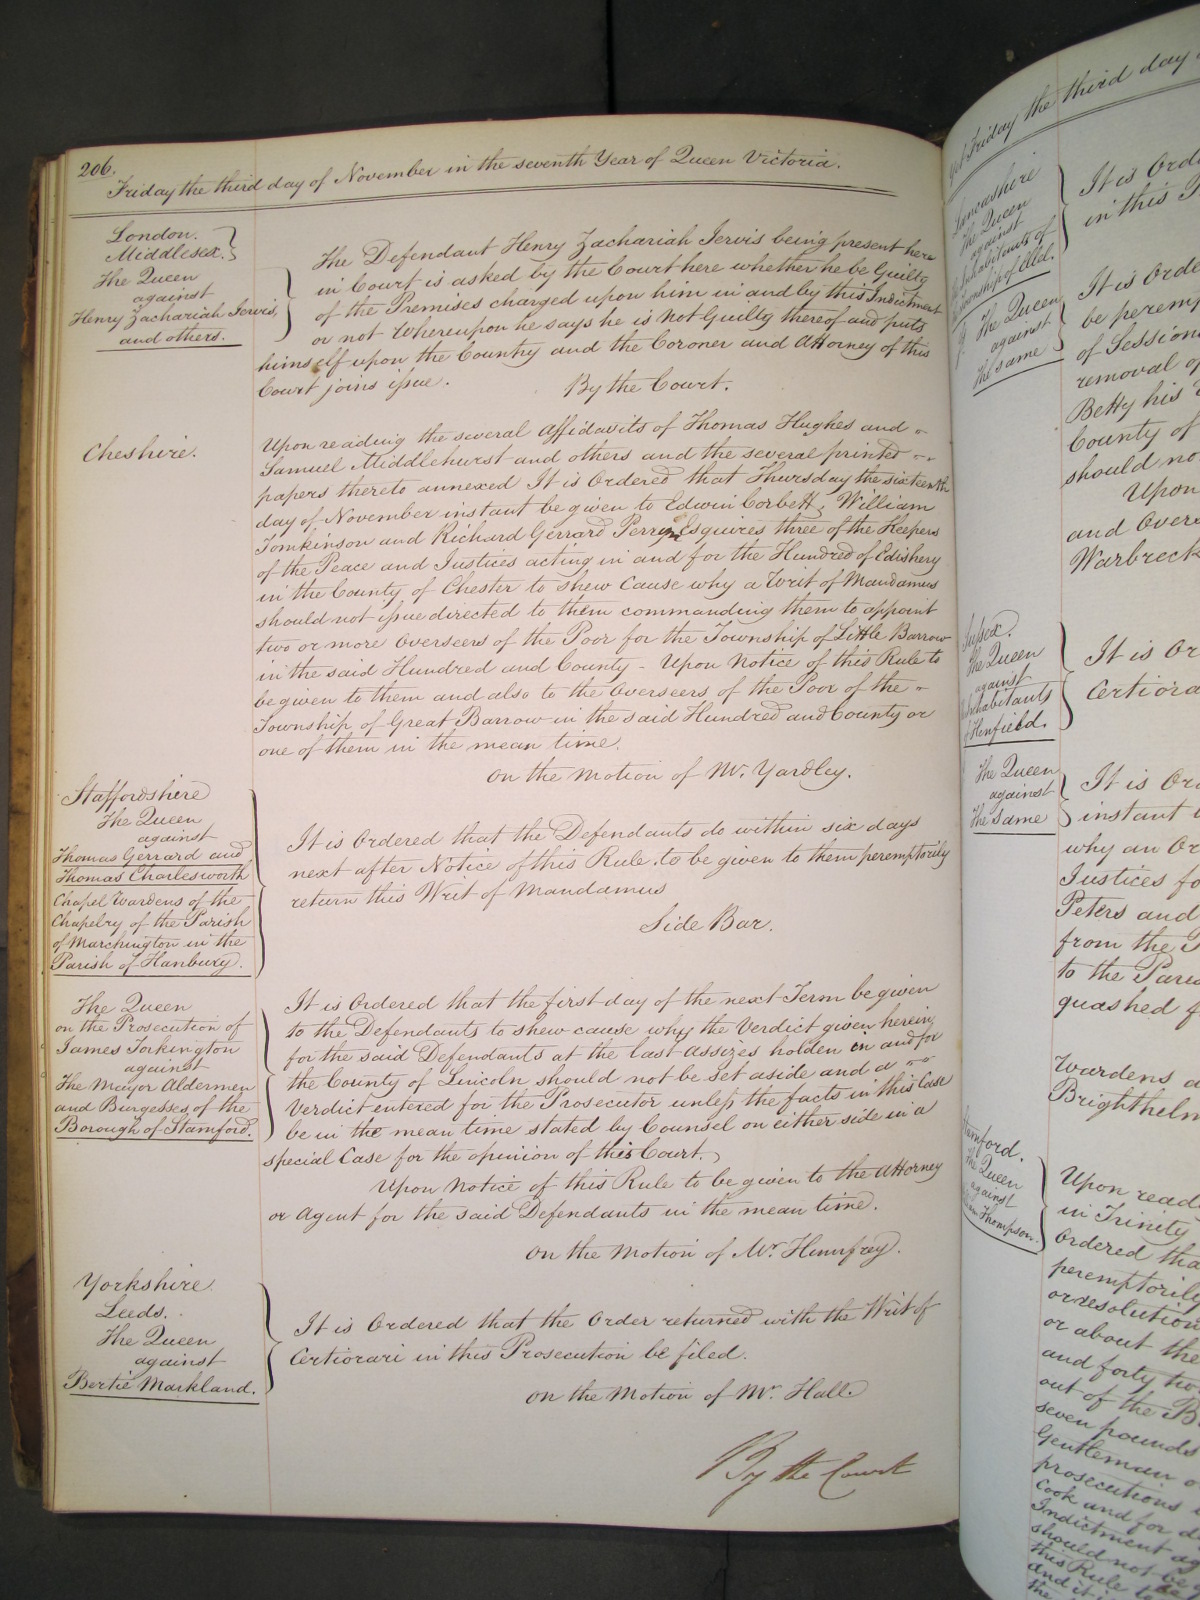 206.
Friday the third day of November in the seventh Year of Queen Victoria.
London.
Middlesex.
The Queen
against
Henry Zachariah Jervis,
and others.
The Defendant Henry Zachariah Jervis being present here
in Court is asked by the Court here whether he be Guilty
of the Premises charged upon him in and by this Indictment
or not Whereupon he says he is Not Guilty thereof and puts
himself upon the Country and the Coroner and Attorney of this
Court joins issue.
By the Court.
Cheshire.
Upon reading the several Affidavits of Thomas Hughes and
Samuel Middlehurst and others and the several printed
papers thereto annexed It is Ordered that Thursday the sixteenth
day of November instant be given to Edwin Corbett, William
Tomkinson and Richard Gerrard Perrin Esquires three of the Keepers
of the Peace and Justices acting in and for the Hundred of Edisbery
in the County of Chester to shew Cause why a Writ of Mandamus
should not issue directed to them commanding them to appoint
two or more Overseers of the Poor for the Township of Little Barrow
in the said Hundred and County - Upon Notice of this Rule to
be given to them and also to the Overseers of the Poor of the
Township of Great Barrow in the said Hundred and County or
one of them in the mean time.
On the Motion of Mr. Yardley.
Staffordshire
The Queen
against
Thomas Gerrard and
Thomas Charlesworth
Chapel Wardens of the
Chapelry of the Parish
of Marchington in the
Parish of Hanbury.
It is Ordered that the Defendants do within six days
next after Notice of this Rule to be given to them peremptorily
return this Writ of Mandamus
Side Bar.
The Queen
on the Prosecution of
James Torkington
against
The Mayor Aldermen
and Burgesses of the
Borough of Stamford.
It is Ordered that the first day of the next Term be given
to the Defendants to shew cause why the Verdict given herein
for the said Defendants at the last Assizes holden in and for
the County of Lincoln should not be set aside and a
Verdict entered for the Prosecutor unless the facts in this Case
be in the mean time stated by Counsel on either side in a
special Case for the opinion of this Court.
Upon Notice of this Rule to be given to the Attorney
or Agent for the said Defendants in the mean time.
On the Motion of Mr. Humfrey.
Yorkshire.
Leeds.
The Queen
against
Bertie Markland.
It is Ordered that the Order returned with the Writ of
Certiorari in this Prosecution be filed.
On the Motion of Mr. Hall.
By the Court
Friday the third day
Lancashire
The Queen
against
Inhabitants of
It is Orde
in this
The Queen
against
The same
It is Orde
be peremp
of Session
removal of
Betty his
County of
should no
Upon
and Overs
Warbreck
Sussex.
The Queen
against
Inhabitants
of Henfield.
It is Or
Certiora
The Queen
against
The Same
It is Or
instant
why an Or
Justices fo
Peters and
from the
to the Paris
quashed f
Wardens a
Brighthelm
Stamford.
The Queen
against
Thompson.
Upon read
in Trinity
Ordered tha
peremptorily
or resolution
or about the
and forty two
out of the B
seven pounds
Gentleman
prosecutions
Cook and for
Indictment ag
should not be
this Rule to be
and it
the